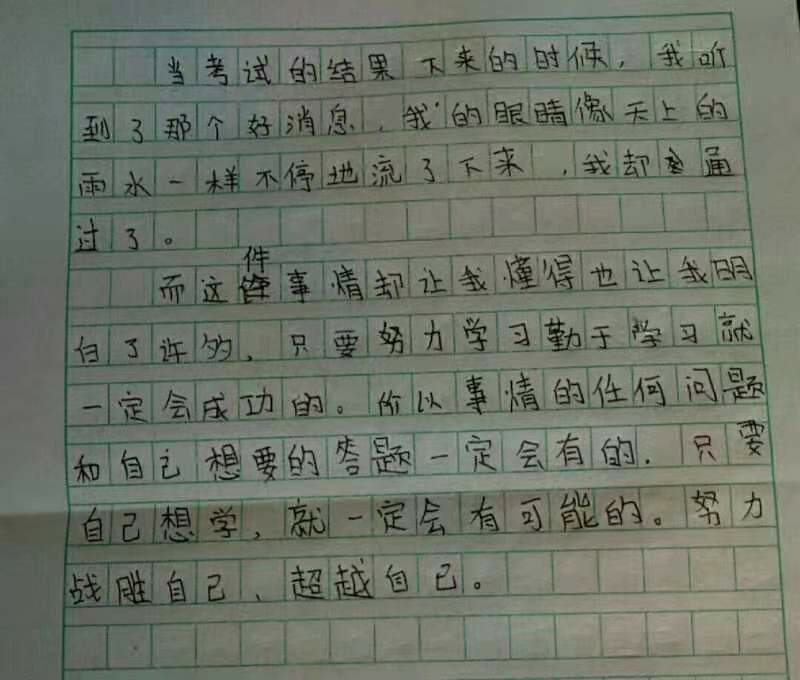 当考试的结果下来的时候，我听
到了那个好消息，我的眼睛像天上的
雨水一样不停地流了下来，我却通
过了。
而这件事情却让我懂得也让我明
白了许多，只要努力学习勤于学习就
一定会成功的。所以事情的任何问题
和自己想要的答题一定会有的．只要
自己想学，就一定会有可能的。努力
战胜自己、超越自己。